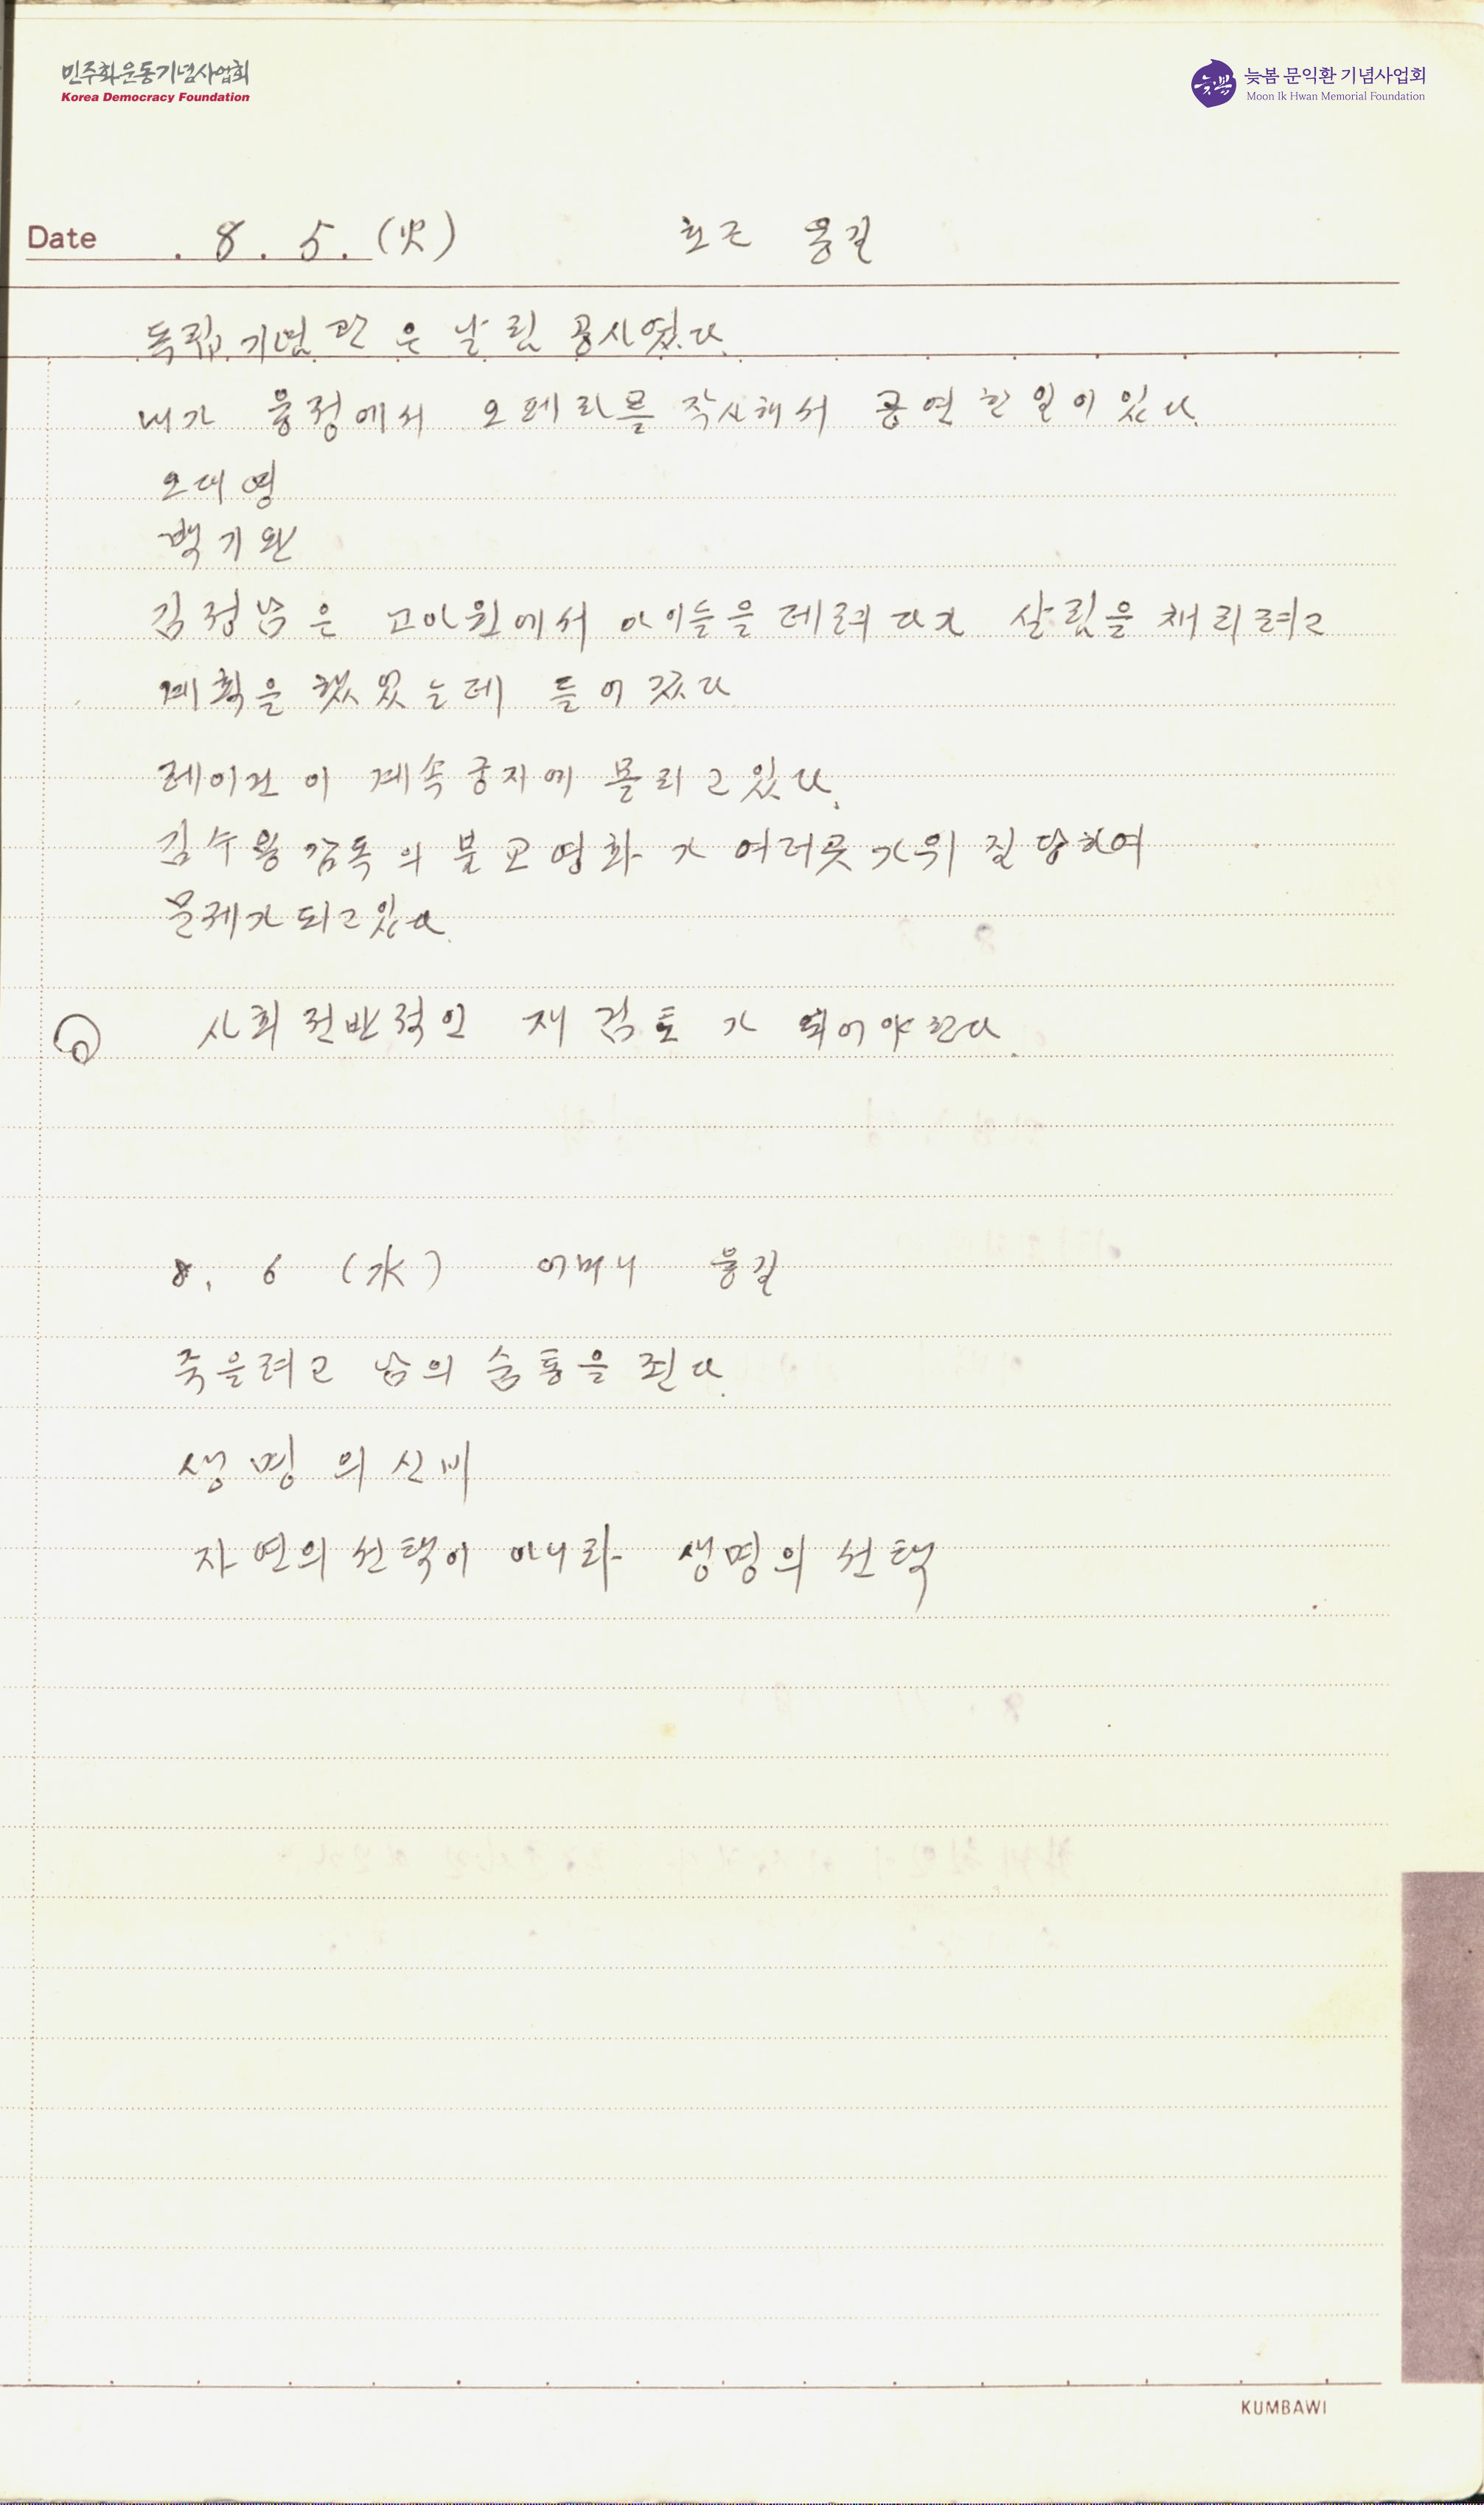 민주화운동기념사업회
Korea Democracy Foundation
늦봄
늦봄 문익환 기념사업회
Moon Ik Hwan Memorial Foundation
Date . 8 . 5 . (火) 호근 용길
독립기념관은 날림 공사였다.
내가 용정에서 오페라를 작사해서 공연한 일이 있다.
오대영
백기완
김정남은 고아원에서 아이들을 데려다가 살림을 채리려고
계획을 했었는데 들어갔다
레이건이 계속 궁지에 몰리고 있다.
김수용 감독의 불교영화가 여러곳 가위질 당하여
문제가 되고 있다.
사회 전반적인 재검토가 되어야 한다.
8. 6 (水) 어머니 용길
죽을려고 남의 숨통을 죈다.
생명의 신비
자연의 선택이 아니라 생명의 선택
KUMBAWI